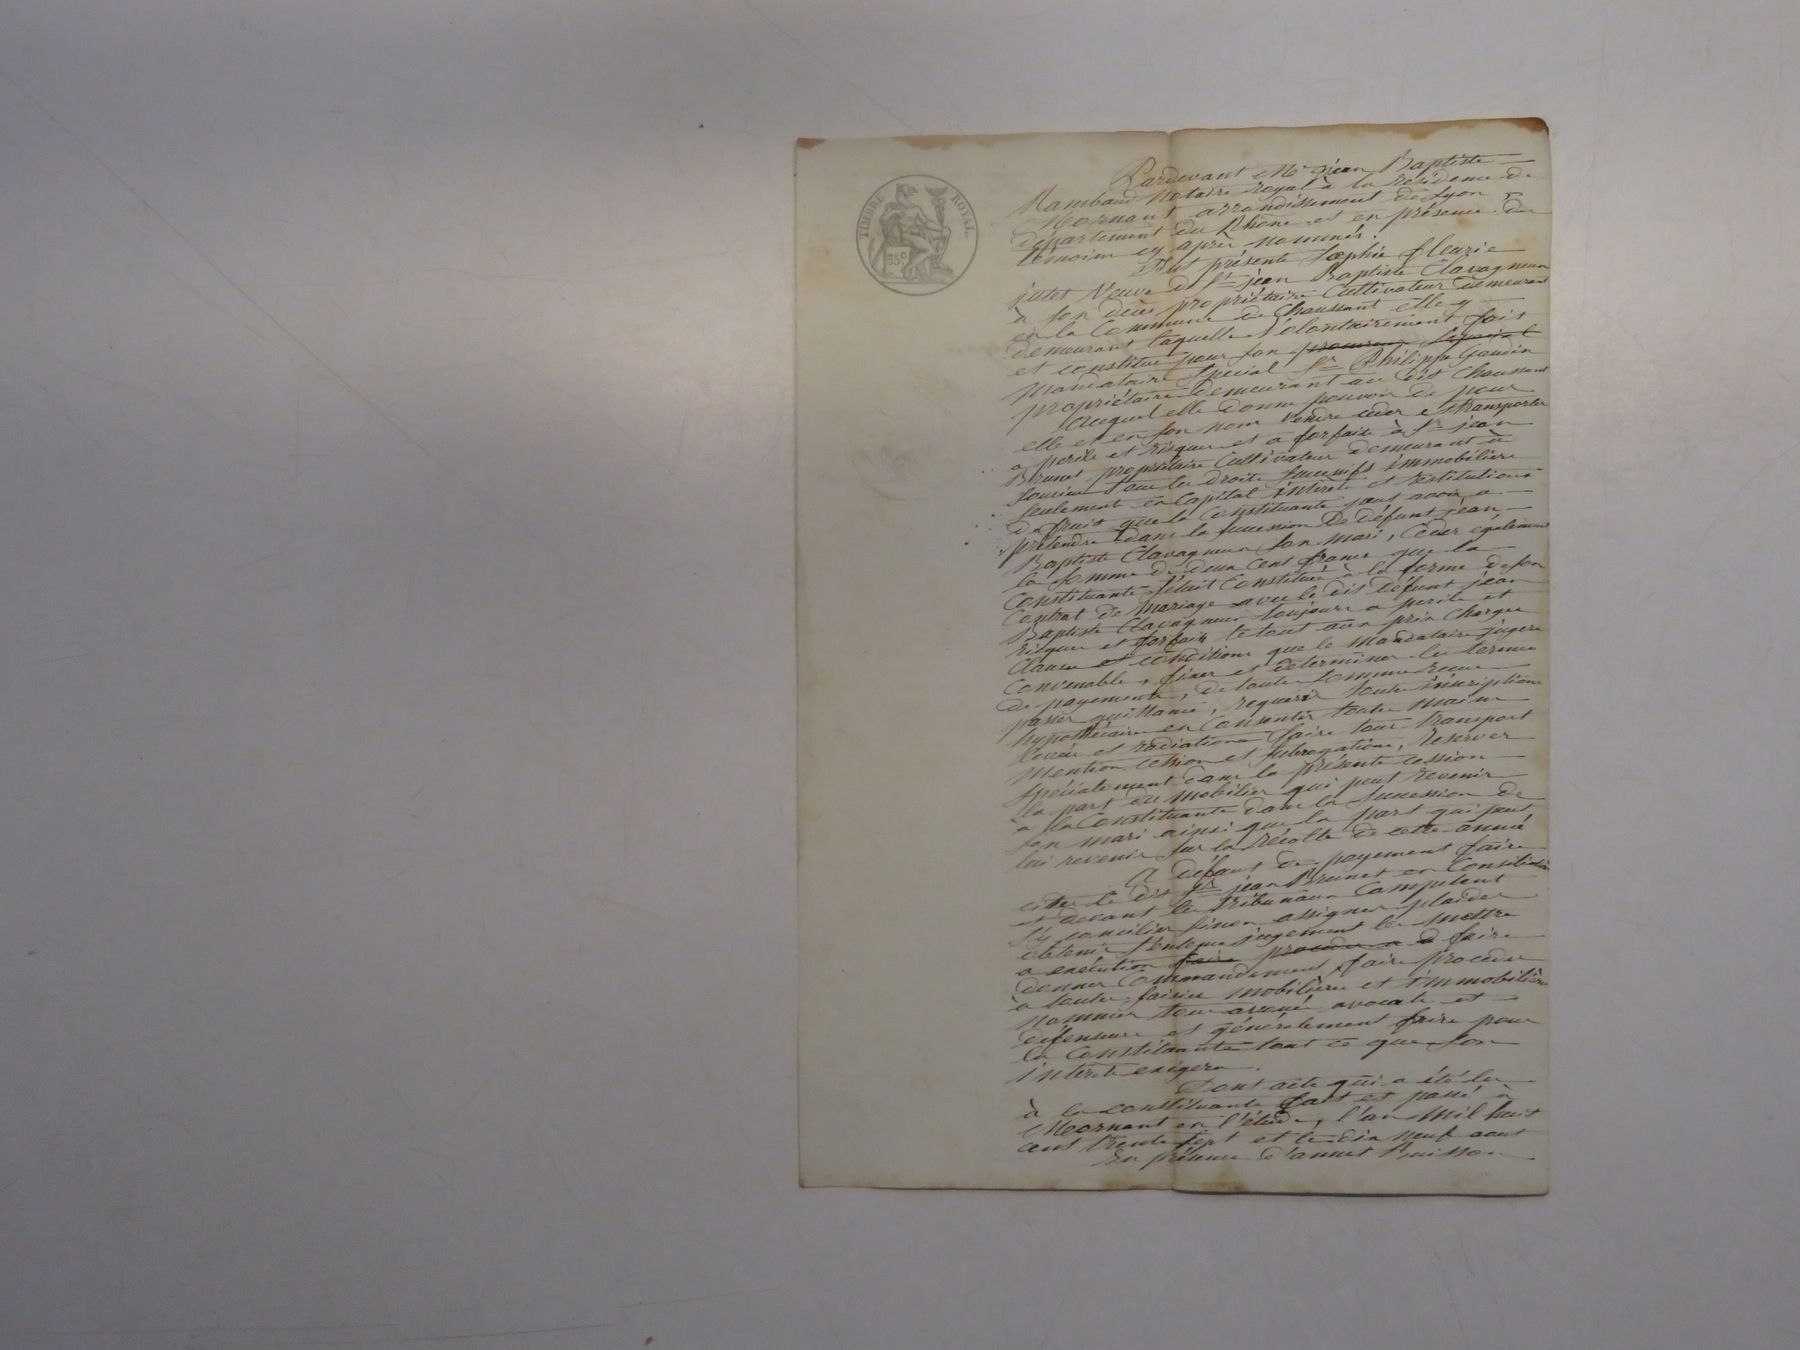 TIMBRE ROYAL.
35c
Pardevant Me jean Baptiste
Rambaud Notaire royal à la residence de
Mornant arrondissement de Lyon
département du Rhône et en présence des
témoins cy après nommés.
Fut présente Sophie fleurie
jutet Veuve de Sr jean Baptiste Clavagneux
à son décès propriétaire Cultivateur demeurant
en la Commune de Chaussant elle y
demeurant laquelle Volontairement fait
et constitue pour son procureur
Mandataire Spécial Sr Philippe Gaudin
propriétaire demeurant au dit Chaussant
Auquel elle donne pouvoir de pour
elle et en son nom Vendre céder et transporter
a perils et risques et a forfait à Sr jean
Brunet propriétaire Cultivateur demeurant à
Soucieu tous les droits Successifs immobiliers
seulement en Capital intérêts et restitutions
de fruits que la Constituante peut avoir a
prétendre dans la succession de défunt jean
Baptiste Clavagneux son mari, Céder également
la somme de deux Cent francs que la
Constituante s'était Constituée à la forme de son
Contrat de Mariage avec le dit défunt jean
Baptiste Clavagneux toujours a perils et
risques et forfait le tout aux prix Charges
Clauses et conditions que le Mandataire jugera
Convenable, fixer et déterminer les termes
de payements, de toutes Sommes reçues
passer quittances, requerir toutes inscriptions
hypothécaires en Consentir toutes mains
levées et radiations faire tous transport
Mention cession et subrogations, réserver
spécialement dans la présente cession
la part du mobilier qui peut revenir
à la Constituante dans la Succession de
son mari ainsi que la part qui peut
lui revenir sur la récolte de cette année
A défaut de payement faire
citer le dit Sr jean Brunet en Conciliation
et devant les tribunaux Compétent
s'y concilier sinon assigner plaider
obtenir Sentence jugement les mettre
a exécution faire procéder a faire
donner Commandement, faire procéder
à toutes saisies mobilières et immobilières
Nommer tous avoués avocats et
défenseurs et généralement faire pour
la Constituante tout ce que son
intérêt exigera.
Dont acte qui a été lu
à la constituante fait et passé à
Mornant en l'étude, l'an Mil huit
cent trente sept et le dix neuf aout
En présence d'annet Buisson